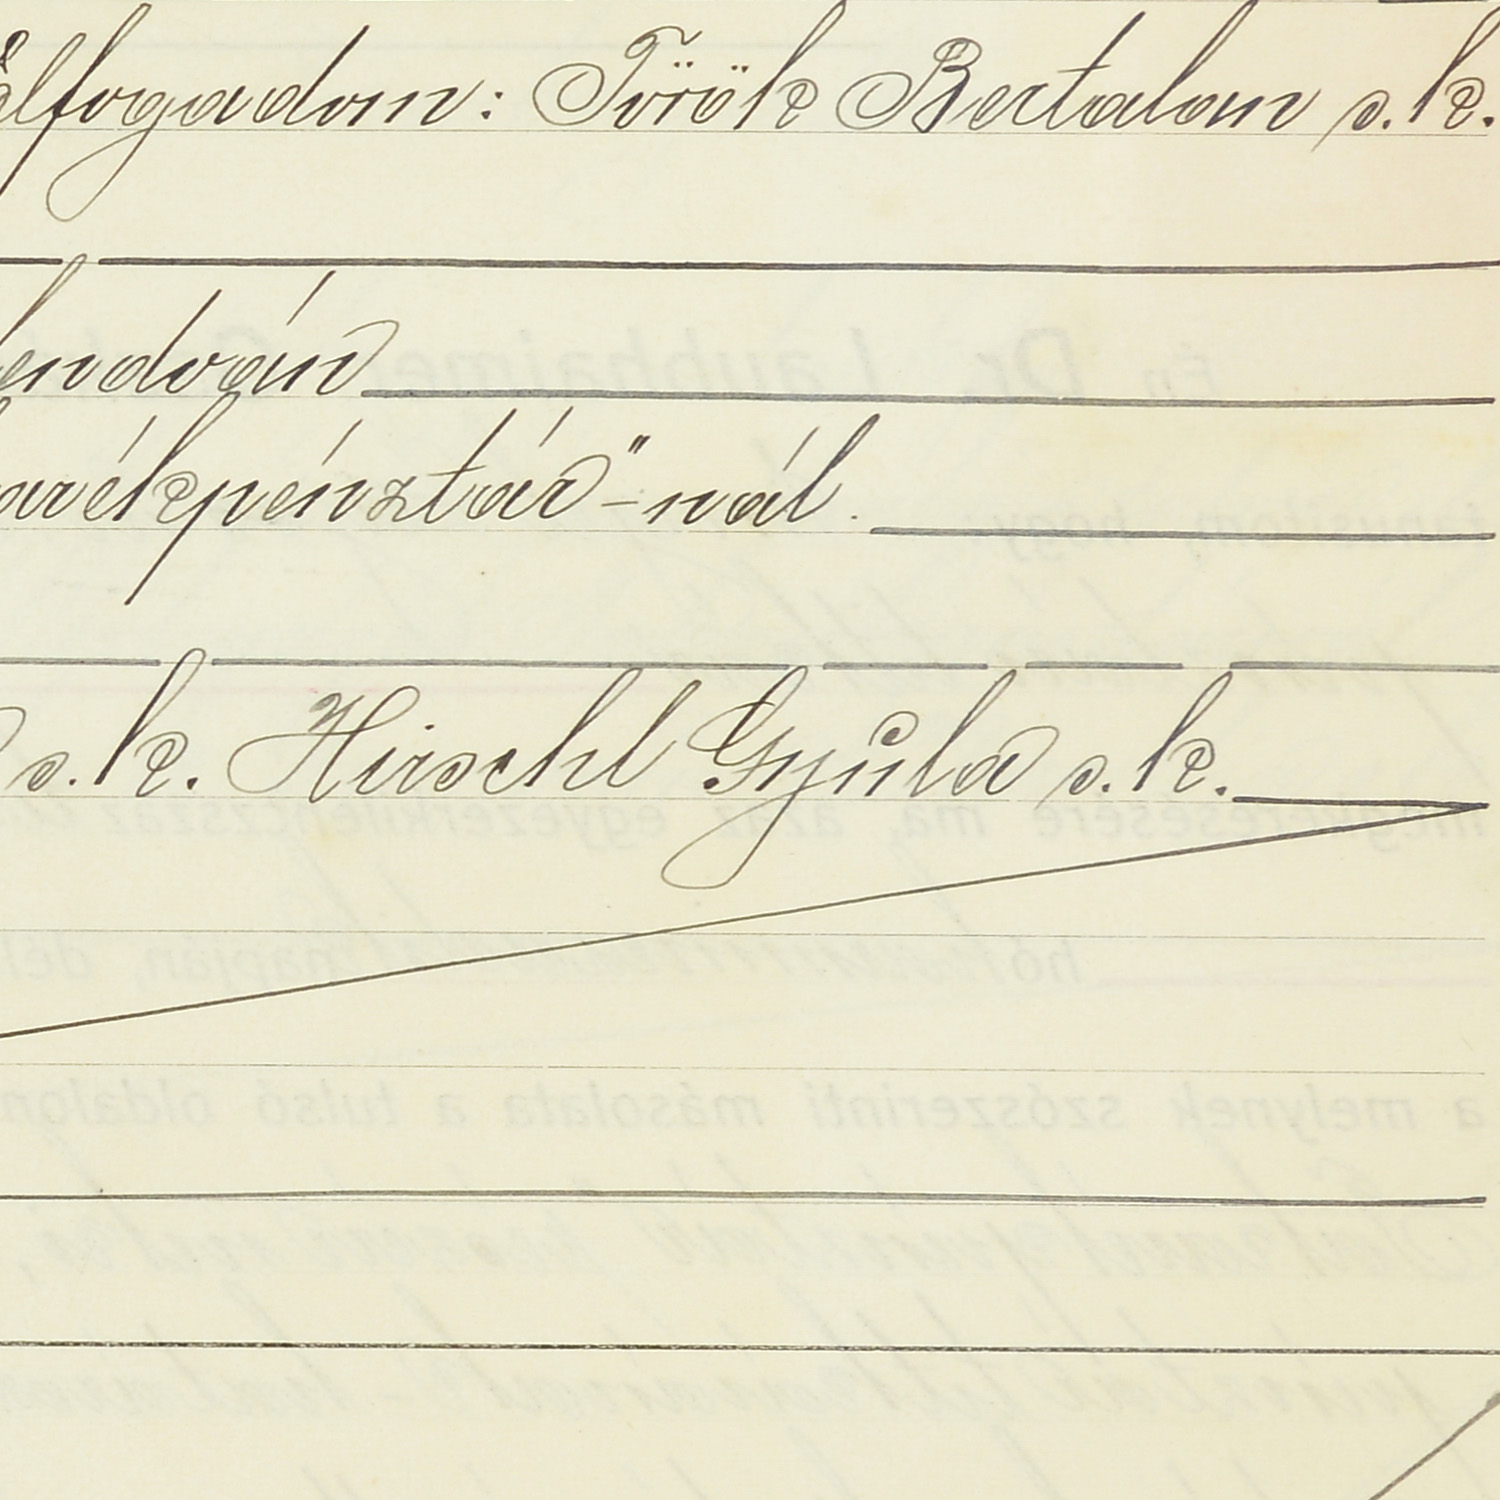 elfogadom: Török Bertalan s.k.
lendván
arékpénztár"-nál.
s.k. Hirschl Gyula s.k.